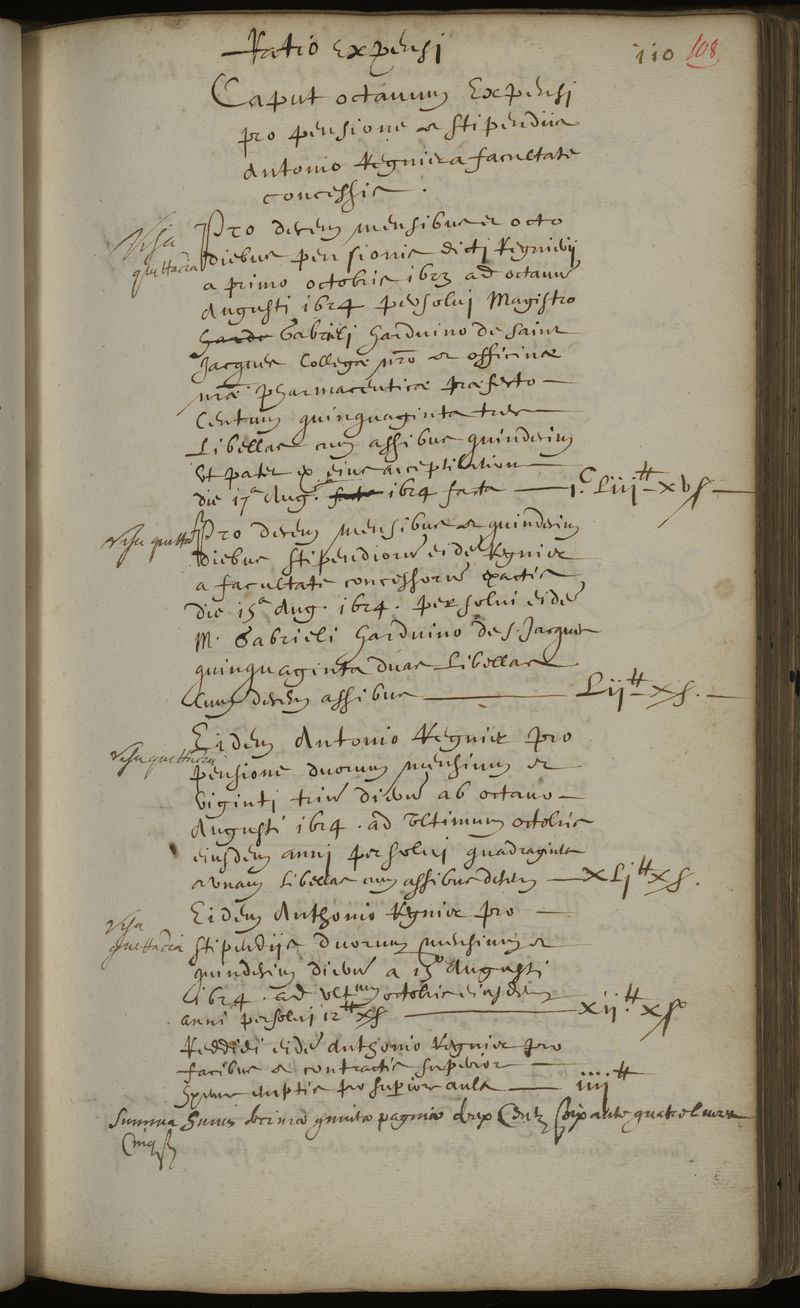 Ratio Expensi
110 108
Caput octauum Expensi
pro pensione et stipendiis
Antonio Regnier a facultate
concessis .
Visa quittacia
Pro decem mensibus et octo
diebus pensionis dicti Regnierij
a primo octobris 1623 ad octauū
Augusti 1624 persolui Magistro
Gabrieli Harduino de Saint
Jacques Collegæ nrō et officinæ
nrā pharmaceuticæ præfecto —
Centum quinquaginta tres —
Libellas cum assibus quindecim
Vt patet ex eius acceptilatione —
die 17ª Aug. 1624 facta — j.C Liij tt xv s —
Visa quitta
Pro decem mensibus et quindecim
diebus stipendiorū eidē Regnier
a facultate concessorū exactis
die 15ª Aug. 1624 . persolui eidē
M. Gabrieli Harduino de S. Jacques
quinquaginta duas Libellas
cum decem assibus — Lij tt x s. —
Visa quittacia
Eidem Antonio Regnier pro
pensione duorum mensium et
viginti triū dierū ab octauo —
Augusti 1624 . ad vltimum octobris
eiusdem anni persolui quadraginta
et vnam Libellas cum assibus decem — xLj tt x s.
Visa quittacia
Eidem Anthonio Regnier pro —
stipendiis duorum mensium et
quindecim dierū a 15º Augusti
1624 . ad vltmum octobris eiusdem
anni persolui 12 tt x s — xij tt x s
Reddidi eidē Anthonio Regnier pro
facibus et contractis superior —
emptis pro superiore aula — iiij tt
Summa huius decimæ quintæ paginæ deux Centz soixante quatre liures
Cinq s